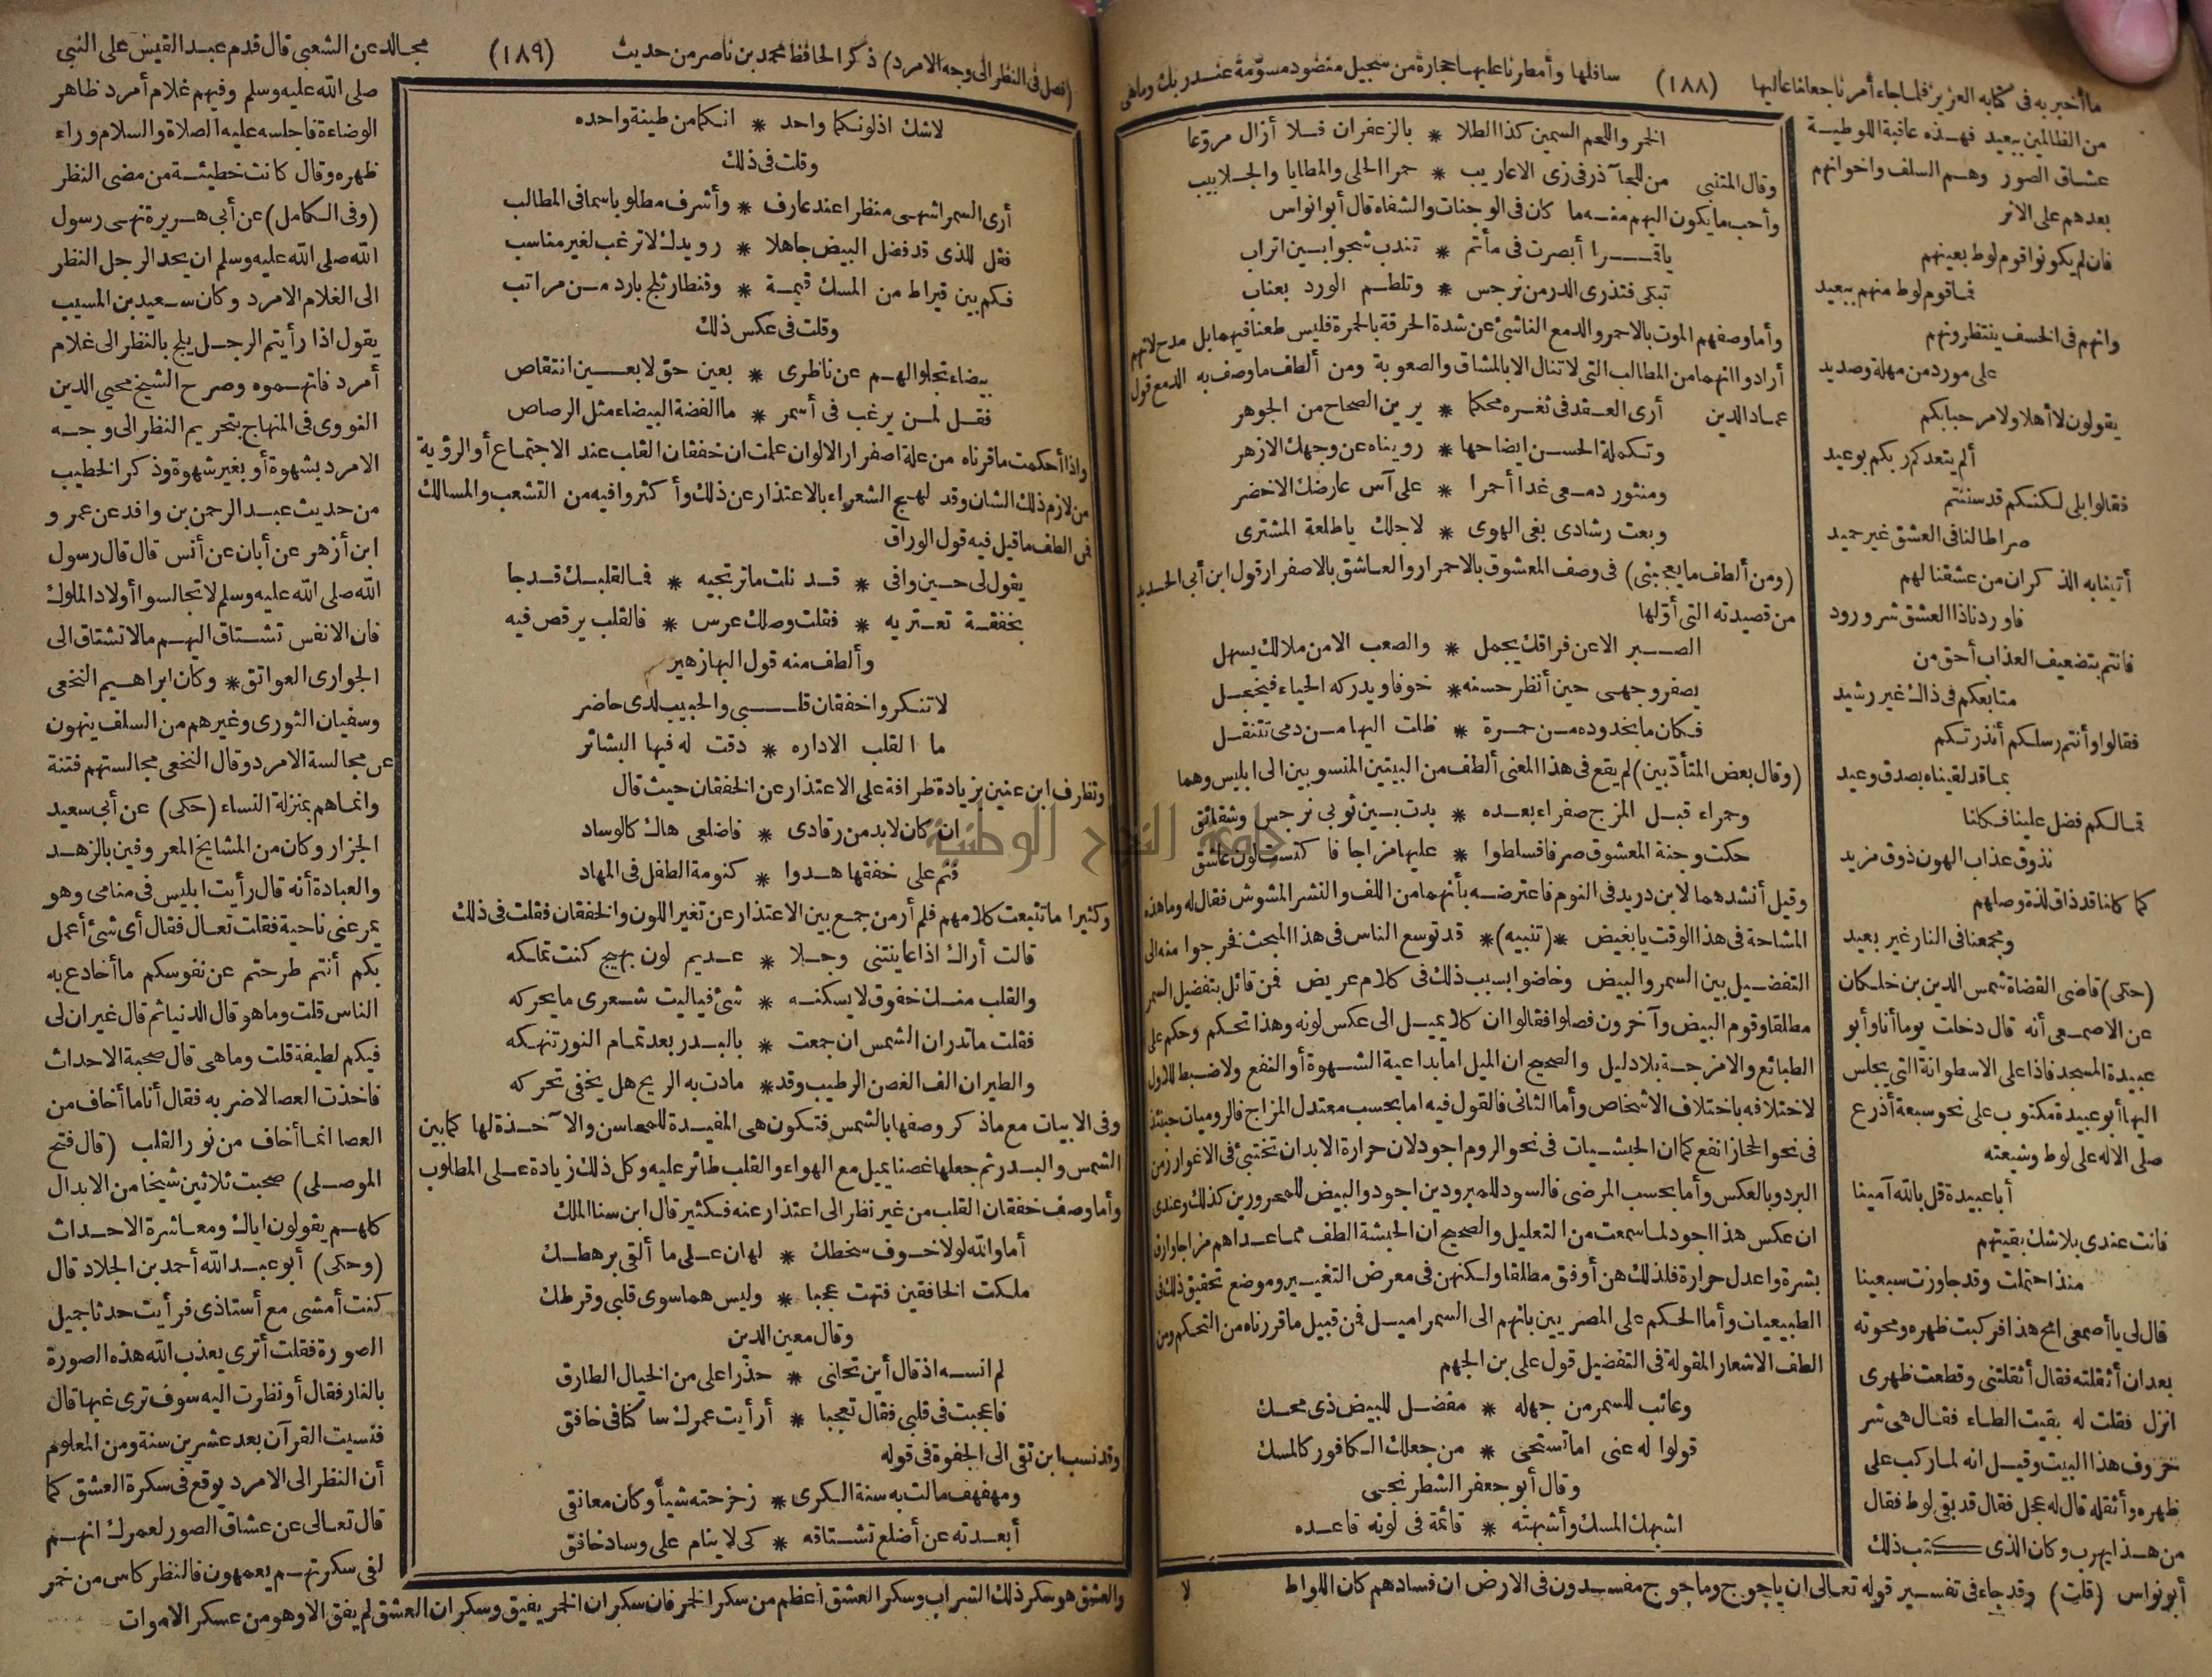 ما أخبر به فى كتابه العزيز فلما جاء أمرنا جعلنا عاليها (١٨٨) سافلها وأمطرنا عليها حجارة من سجيل منضود مسوّمة عند ربك وماهى
من الظالمين ببعيد فهذه عاقبة اللوطية
عشاق الصور وهم السلف واخوانهم
بعدهم على الاثر
فان لم يكونوا قوم لوط بعينهم
فما قوم لوط منهم ببعيد
وانهم فى الخسف ينتظرونهم
على مورد من مهلة وصديد
يقولون لا أهلا ولا مرحبا بكم
ألم يتعدكم ربكم بوعيد
فقالوا بلى لكنكم قد سننتم
صراطا لنا فى العشق غير حميد
أتينا به الذكران من عشقنا لهم
فاوردنا ذا العشق شر ورود
فانتم بتضعيف العذاب أحق من
متابعكم فى ذاك غير رشيد
فقالوا وأنتم رسلكم أنذرتكم
بما قد لقيناه بصدق وعيد
فما لكم فضل علينا فكلنا
نذوق عذاب الهون ذوق مزيد
كما كلنا قد ذاق لذة وصلهم
ومجمعنا فى النار غير بعيد
(حكى) قاضى القضاة شمس الدين بن خلكان
عن الاصمعى أنه قال دخلت يوما أنا وأبو
عبيدة المسجد فاذا على الاسطوانة التى يجلس
اليها أبو عبيدة مكتوب على نحو سبعة أذرع
صلى الاله على لوط وشيعته
أبا عبيدة قل بالله آمينا
فانت عندى بلا شك بقيتهم
منذ احتلمت وقد جاوزت سبعينا
قال لى يا أصمعى امح هذا فركبت ظهره ومحوته
بعد ان أثقلته فقال أثقلتنى وقطعت ظهرى
انزل فقلت له بقيت الطاء فقال هى شر
حروف هذا البيت وقيل انه لما ركب على
ظهره وأثقله قال له عجل فقال قد بقى لوط فقال
من هذا يهرب وكان الذى كتب ذلك
أبو نواس (قلت) وقد جاء فى تفسير قوله تعالى ان ياجوج وماجوج مفسدون فى الارض ان فسادهم كان اللواط
الخمر واللحم السمين كذا الطلا * بالزعفران فلا أزال مروّعا
وقال المتنبى من للجآذر فى زى الاعاريب * حمرا الحلى والمطايا والجلابيب
وأحب ما يكون اليهم منه ما كان فى الوجنات والشفاه قال أبو انواس
يا قمرا أبصرت فى مأتم * تندب شجوا بين اتراب
تبكى فتذرى الدر من نرجس * وتلطم الورد بعناب
وأما وصفهم الموت بالاحمر والدمع الناشئ عن شدة الحرقة بالحمرة فليس طعنا فيهما بل مدح لانهم
أرادوا انهما من المطالب التى لا تنال الا بالمشاق والصعوبة ومن ألطف ما وصف به الدمع قول
عماد الدين أرى العقد فى ثغره محكما * يرين الصحاح من الجوهر
وتكملة الحسن ايضاحها * رويناه عن وجهك الازهر
ومنثور دمعى غدا أحمرا * على آس عارضك الاخضر
وبعت رشادى بغى الهوى * لاجلك يا طلعة المشترى
(ومن ألطف ما يعجبنى) فى وصف المعشوق بالاحمرار والعاشق بالاصفرار قول ابن أبى الحديد
من قصيدته التى أوّلها
الصبر الا عن فراقك يجمل * والصعب الا من ملالك يسهل
يصفر وجهى حين أنظر حسنه * خوفا ويدركه الحياء فيخجل
فكان ما بخدوده من حمرة * ظلت اليها من دمى تتنقل
(وقال بعض المتأدّبين) لم يقع فى هذا المعنى ألطف من البيتين المنسوبين الى ابليس وهما
وحمراء قبل المزج صفراء بعده * بدت بين ثوبى نرجس وشقائق
حكت وجنة المعشوق صرفا فسلطوا * عليها مزاجا فاكتست لون عاشق
وقيل أنشدهما لابن دريد فى النوم فاعترضه بأنهما من اللف والنشر المشوش فقال له وما هذه
المشاحة فى هذا الوقت يا بغيض *(تنبيه)* قد توسع الناس فى هذا المبحث فخرجوا منه الى
التفضيل بين السمر والبيض وخاضوا بسبب ذلك فى كلام عريض فمن قائل بتفضيل السمر
مطلقا وقوم البيض وآخرون فصلوا فقالوا ان كلا يميل الى عكس لونه وهذا تحكم وحكم على
الطبائع والامزجة بلا دليل والصحيح ان الميل اما بداعية الشهوة أو النفع ولا ضبط للاول
لاختلافه باختلاف الاشخاص وأما الثانى فالقول فيه اما بحسب معتدل المزاج فالروميات حينئذ
فى نحو الحجاز انفع كما ان الحبشيات فى نحو الروم اجود لان حرارة الابدان تختبئ فى الاغوار زمن
البرد وبالعكس وأما بحسب المرضى فالسود للمبرودين اجود والبيض للمحرورين كذلك وعندى
ان عكس هذا اجود لما سمعت من التعليل والصحيح ان الحبشة الطف مما عداهم مزاجا وارق
بشرة واعدل حرارة فلذلك هن أوفق مطلقا ولكنهن فى معرض التغيير وموضع تحقيق ذلك فى
الطبيعيات وأما الحكم على المصريين بانهم الى السمر اميل فمن قبيل ما قررناه من التحكم ومن
الطف الاشعار المقولة فى التفضيل قول على بن الجهم
وعائب للسمر من جهله * مفضل للبيض ذى محك
قولوا له عنى اما تستحى * من جعلك الكافور كالمسك
وقال أبو جعفر الشطرنجى
اشبهك المسك وأشبهته * قائمة فى لونه قاعده
لا
(فصل فى النظر الى وجه الامرد) ذكر الحافظ محمد بن ناصر من حديث (١٨٩) مجالد عن الشعبى قال قدم عبد القيس على النبى
لاشك اذ لونكما واحد * انكما من طينة واحده
وقلت فى ذلك
أرى السمر اشهى منظرا عند عارف * وأشرف مطلوبا سما فى المطالب
فقل للذى قد فضل البيض جاهلا * رويدك لا ترغب لغير مناسب
فكم بين قيراط من المسك قيمة * وقنطار ثلج بارد من مراتب
وقلت فى عكس ذلك
بيضاء تجلو الهم عن ناظرى * بعين حق لا بعين انتقاص
فقل لمن يرغب فى أسمر * ما الفضة البيضاء مثل الرصاص
واذا أحكمت ما قرناه من علة اصفرار الالوان علمت ان خفقان القلب عند الاجتماع أو الرؤية
من لازم ذلك الشان وقد لهج الشعراء بالاعتذار عن ذلك وأكثروا فيه من التشعب والمسالك
فمن الطف ما قيل فيه قول الوراق
يقول لى حين وافى * قد نلت ما ترتجيه * فما لقلبك قد جا
بخفقة تعتريه * فقلت وصلك عرس * فالقلب يرقص فيه
وألطف منه قول البها زهير
لا تنكروا خفقان قلبى والحبيب لدى حاضر
ما القلب الا داره * دقت له فيها البشائر
وتظارف ابن عنين بزيادة ظرافة على الاعتذار عن الخفقان حيث قال
ان كان لابد من رقادى * فاضلعى هاك كالوساد
فنم على خفقها هدوا * كنومة الطفل فى المهاد
وكثيرا ما تتبعت كلامهم فلم أر من جمع بين الاعتذار عن تغير اللون والخفقان فقلت فى ذلك
قالت أراك اذا عاينتنى وجلا * عديم لون بهيج كنت تملكه
والقلب منك خفوق لا يسكنه * شئ فياليت شعرى ما يحركه
فقلت ما تدر ان الشمس ان جمعت * بالبدر بعد تمام النور تنهكه
والطير ان الف الغصن الرطيب وقد * مادت به الريح هل يخفى تحركه
وفى الابيات مع ما ذكر وصفها بالشمس فتكون هى المفيدة للمحاسن والآخذة لها كما بين
الشمس والبدر ثم جعلها غصنا يميل مع الهواء والقلب طائر عليه وكل ذلك زيادة على المطلوب
وأما وصف خفقان القلب من غير نظر الى اعتذار عنه فكثير قال ابن سنا الملك
أما والله لولا خوف سخطك * لهان على ما ألقى برهطك
ملكت الخافقين فتهت عجبا * وليس هما سوى قلبى وقرطك
وقال معين الدين
لم انسه اذ قال أين تحلنى * حذرا على من الخيال الطارق
فاعجبت فى قلبى فقال تعجبا * أرأيت عمرك ساكنا فى خافق
وقد نسب ابن تقى الى الجفوة فى قوله
ومهفهف مالت به سنة الكرى * زحزحته شيأ وكان معانقى
أبعدته عن أضلع تشتاقه * كى لا ينام على وساد خافق
صلى الله عليه وسلم وفيهم غلام أمرد ظاهر
الوضاءة فاجلسه عليه الصلاة والسلام وراء
ظهره وقال كانت خطيئة من مضى النظر
(وفى الكامل) عن أبى هريرة نهى رسول
الله صلى الله عليه وسلم ان يحد الرجل النظر
الى الغلام الامرد وكان سعيد بن المسيب
يقول اذا رأيتم الرجل يلح بالنظر الى غلام
أمرد فاتهموه وصرح الشيخ محيى الدين
النووى فى المنهاج بتحريم النظر الى وجه
الامرد بشهوة أو بغير شهوة وذكر الخطيب
من حديث عبد الرحمن بن وافد عن عمرو
ابن أزهر عن أبان عن أنس قال قال رسول
الله صلى الله عليه وسلم لا تجالسوا أولاد الملوك
فان الانفس تشتاق اليهم ما لا تشتاق الى
الجوارى العواتق * وكان ابراهيم النخعى
وسفيان الثورى وغيرهم من السلف ينهون
عن مجالسة الامرد وقال النخعى مجالستهم فتنة
وانما هم بمنزلة النساء (حكى) عن أبى سعيد
الجزار وكان من المشايخ المعروفين بالزهد
والعبادة أنه قال رأيت ابليس فى منامى وهو
يمر عنى ناحية فقلت تعال فقال أى شئ أعمل
بكم أنتم طرحتم عن نفوسكم ما أخادع به
الناس قلت وما هو قال الدنيا ثم قال غير ان لى
فيكم لطيفة قلت وما هى قال صحبة الاحداث
فاخذت العصا لاضربه فقال أنا ما أخاف من
العصا انما أخاف من نور القلب (قال فتح
الموصلى) صحبت ثلاثين شيخا من الابدال
كلهم يقولون اياك ومعاشرة الاحداث
(وحكى) أبو عبد الله أحمد بن الجلاد قال
كنت أمشى مع أستاذى فرأيت حدثا جميل
الصورة فقلت أترى يعذب الله هذه الصورة
بالنار فقال أو نظرت اليه سوف ترى غبها قال
فنسيت القرآن بعد عشرين سنة ومن المعلوم
أن النظر الى الامرد يوقع فى سكرة العشق كما
قال تعالى عن عشاق الصور لعمرك انهم
لفى سكرتهم يعمهون فالنظر كاس من خمر
والعشق هو سكر ذلك الشراب وسكر العشق أعظم من سكر الخمر فان سكران الخمر يفيق وسكران العشق لم يفق الا وهو من عسكر الاموات
جامعة النجاح الوطنية